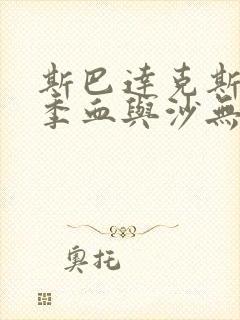 斯巴達克斯
季血與沙無
奧托